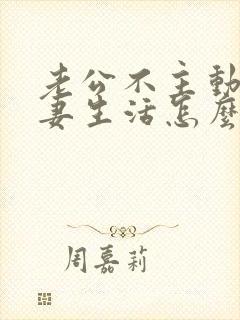 老公不主動
妻生活怎麼
周嘉莉